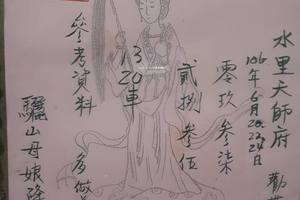 水里天師府
106年6月20.22.24日
零玖叁柒
貳捌叁伍
13
20車
參考資料
多做
驪山母娘降